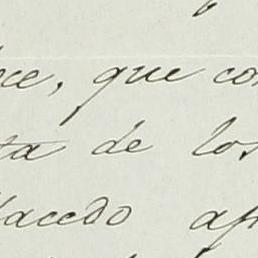 ce, que co
ta de los
acedo ap